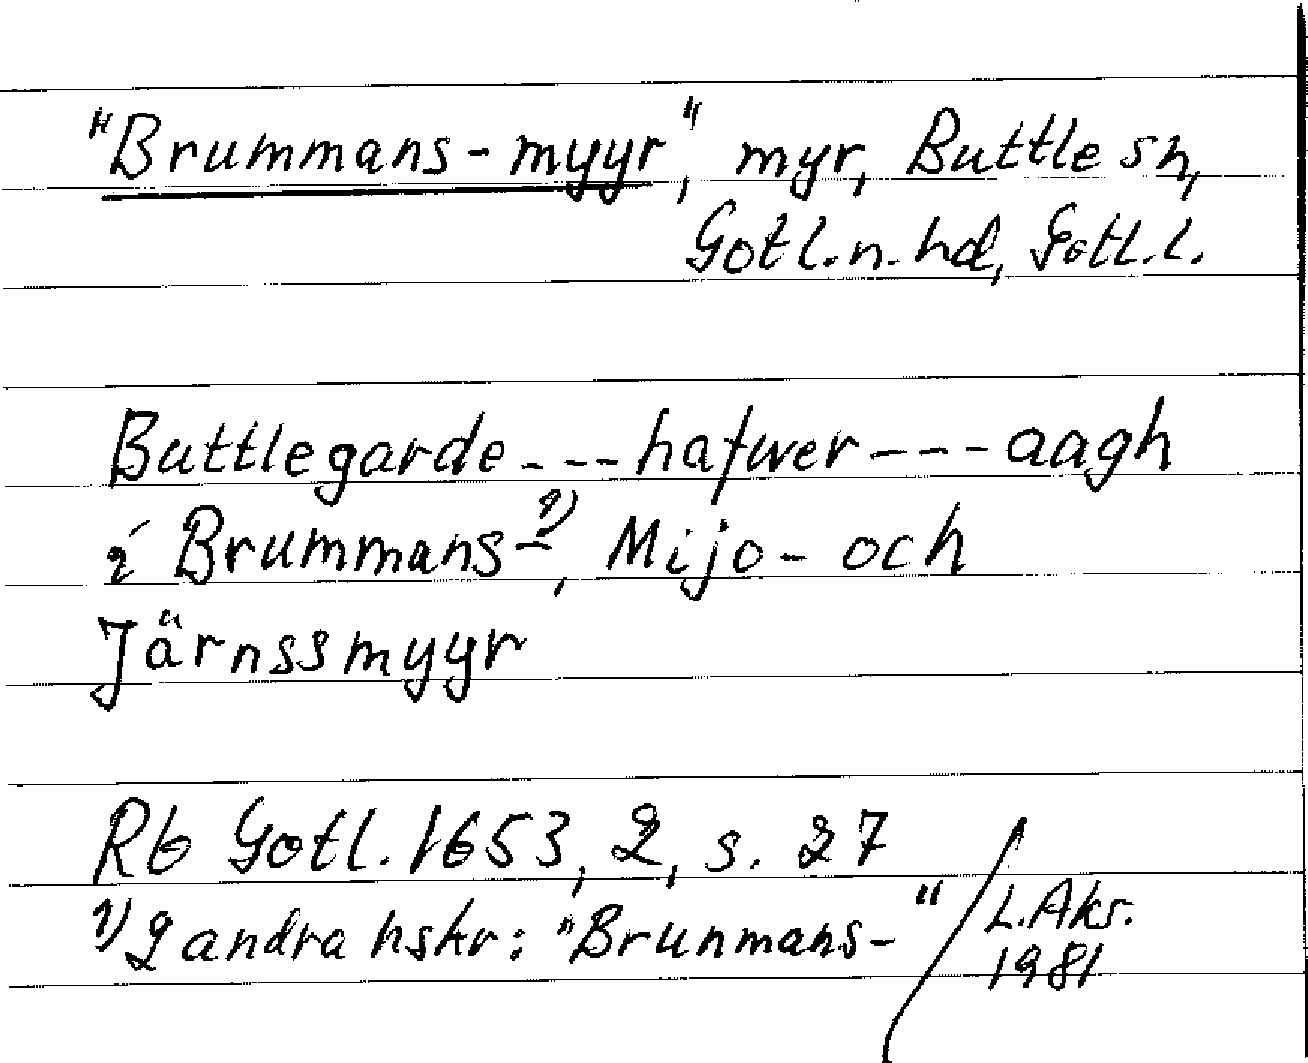 "Brummans-myyr", myr, Buttle sn,
Gotl. n. hd, Gotl. l.
Buttlegarde --- hafwer --- aagh
i Brummans-¹⁾, Mijo- och
Järnssmyyr
Rb Gotl. 1653, 2, s. 27
¹⁾ 2 andra hskr: "Brunmans-"
L. Aks.
1981